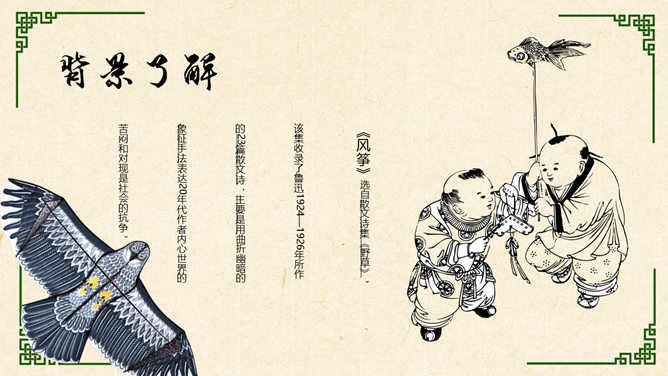 背景了解
《风筝》选自散文诗集《野草》。
该集收录了鲁迅1924—1926年所作
的23篇散文诗，主要是用曲折幽暗的
象征手法表达20年代作者内心世界的
苦闷和对现是社会的抗争。